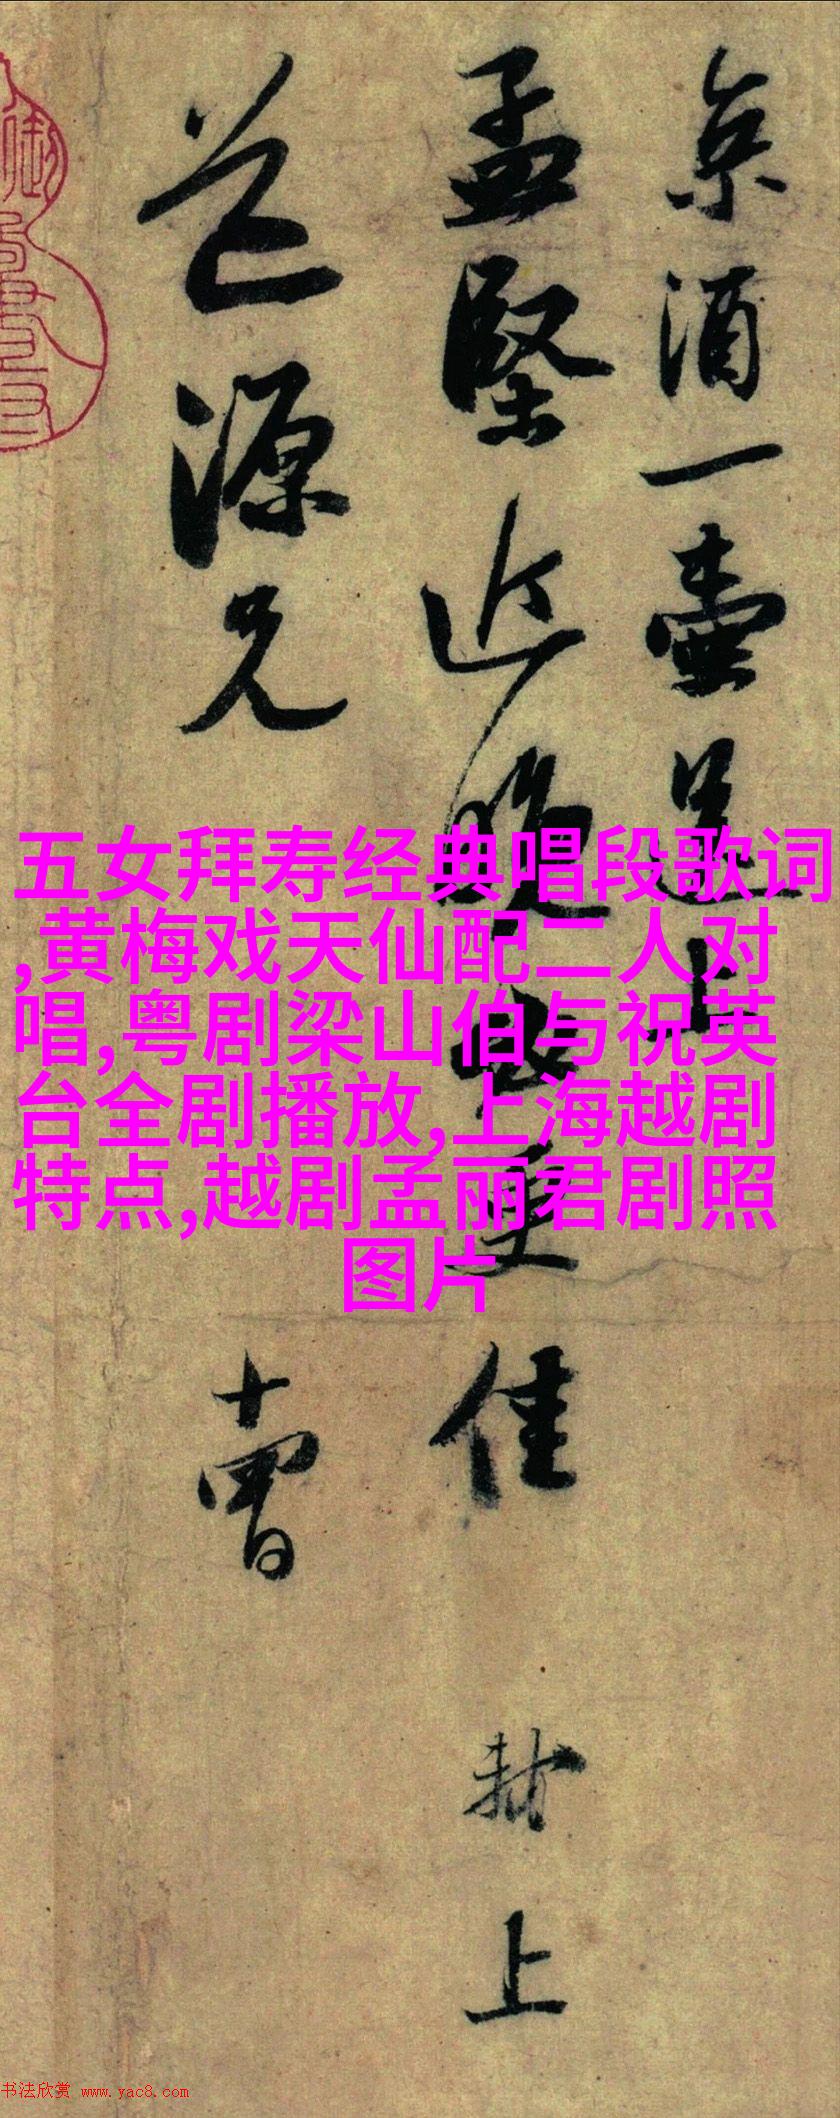 京酒一壶送上
孟坚近晚必更佳
芒源兄
十曹
黻上
五女拜寿经典唱段歌词
,黄梅戏天仙配二人对
唱,粤剧梁山伯与祝英
台全剧播放,上海越剧
特点,越剧孟丽君剧照
图片
书法欣赏 www.yac8.com